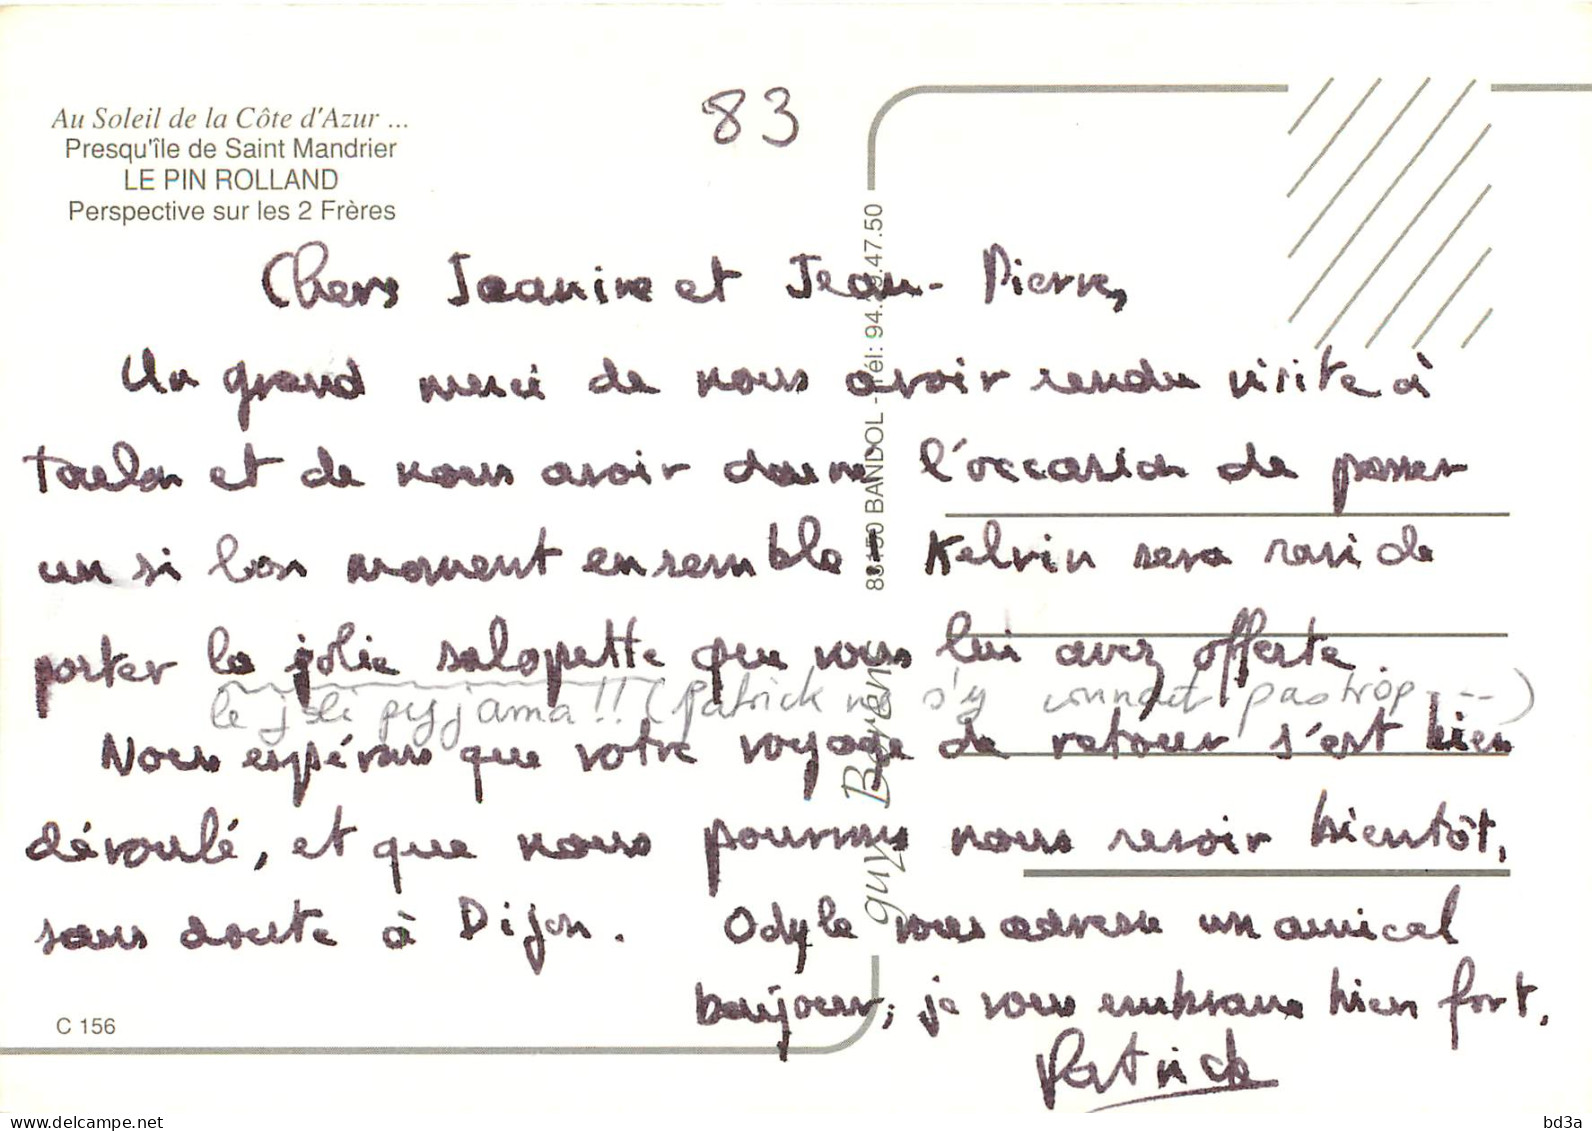 Au Soleil de la Côte d'Azur ...
Presqu'île de Saint Mandrier
LE PIN ROLLAND
Perspective sur les 2 Frères
83
Chers Jeanine et Jean-Pierre,
Un grand merci de nous avoir rendu visite à
Toulon et de nous avoir donné l'occasion de passer
un si bon moment ensemble. Kelvin sera ravi de
porter la jolie salopette que vous lui avez offerte.
le joli pyjama!! (Patrick ne s'y connait pas trop ---)
Nous espérons que votre voyage de retour s'est bien
déroulé, et que nous pourrons nous revoir bientôt,
sans doute à Dijon. Odyle vous adresse un amical
bonjour; je vous embrasse bien fort,
Patrick
guy Boren
BANDOL - Tél: 94. 9.47.50
C 156
www.delcampe.net
bd3a